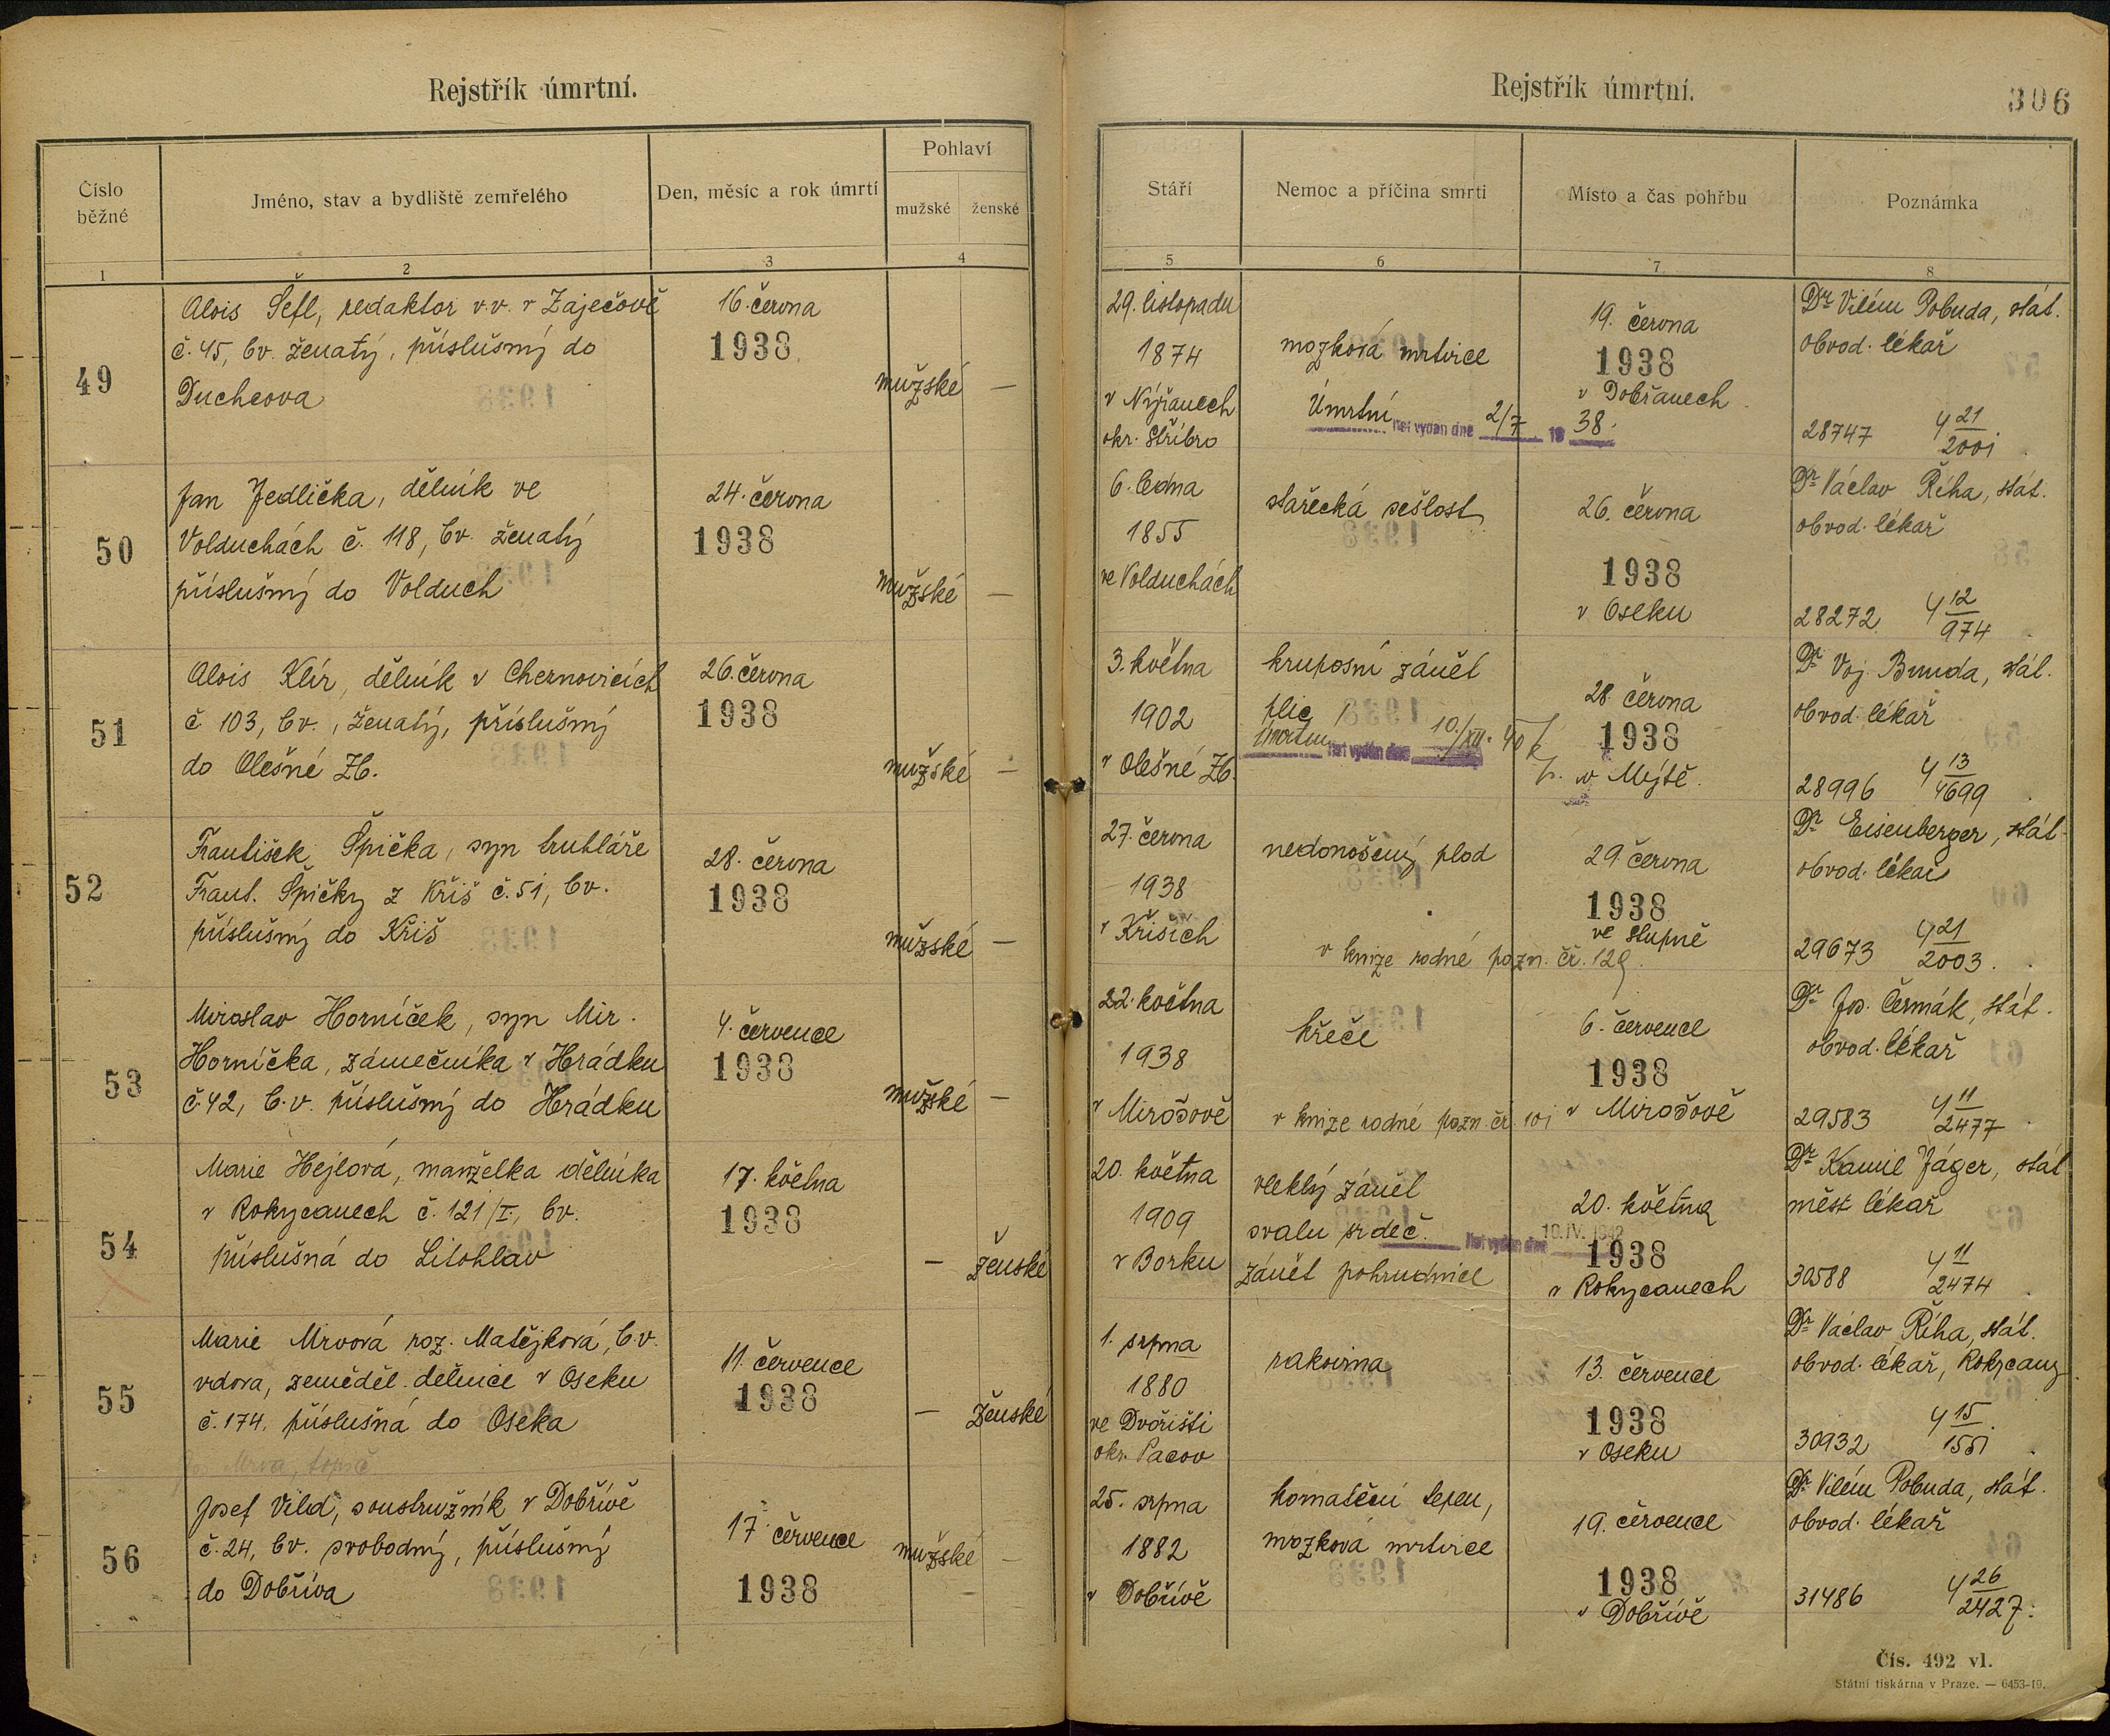 Rejstřík úmrtní.
Číslo běžné
Jméno, stav a bydliště zemřelého
Den, měsíc a rok úmrtí
Pohlaví
mužské
ženské
1
2
3
4
Rejstřík úmrtní.
306
Stáří
Nemoc a příčina smrti
Místo a čas pohřbu
Poznámka
5
6
7
8
49
Alois Šefl, redaktor v.v. v Zaječově
č. 45, bv. ženatý, příslušný do
Duchcova
16. června
1938
mužské —
29. listopadu
1874
v Nýřanech
okr. Stříbro
mozková mrtvice
Úmrtní list vydán dne 2/7 19 38.
19. června
1938
v Dobřanech
Dr Vilém Pobuda, stát.
obvod. lékař
28747 4 21/2001
50
Jan Jedlička, dělník ve
Volduchách č. 118, bv. ženatý
příslušný do Volduch
24. června
1938
mužské —
6. ledna
1855
ve Volduchách
stařecká sešlost
26. června
1938
v Oseku
Dr Václav Říha, stát.
obvod. lékař
28272 4 12/974
51
Alois Klír, dělník v Chernovicích
č 103, bv., ženatý, příslušný
do Olešné Zb.
26. června
1938
mužské —
3. května
1902
v Olešné Zb.
kruposní zánět
plic
Úmrtní list vydán dne 10./XII. 40
28. června
1938
v Mýtě.
Dr Voj. Brunda, stát.
obvod. lékař
28996 4 13/4699
52
František Špička, syn truhláře
Frant. Špičky z Kříš č. 51, bv.
příslušný do Kříš
28. června
1938
mužské —
27. června
1938
v Křiších
nedonošený plod
v knize rodné pozn. čř. 129.
29 června
1938
ve Stupně
Dr Eisenberger, stát.
obvod. lékař
29673 4 21/2003.
53
Miroslav Horníček, syn Mir.
Horníčka, zámečníka v Hrádku
č. 42, b.v. příslušný do Hrádku
4. července
1938
mužské —
22. května
1938
v Mirošově
křeče
v knize rodné pozn. čř. 101
6. července
1938
v Mirošově
Dr Jos. Čermák, stát.
obvod. lékař
29583 4 11/2477
54
Marie Hejlová, manželka dělníka
v Rokycanech č. 121/I., bv.
příslušná do Litohlav
17. května
1938
— ženské
20. května
1909
v Borku
vleklý zánět
svalu srdeč.
list vydán dne 10. IV. 1942
zánět pohrudnice
20. května
1938
v Rokycanech
Dr Kamil Jäger, stát
měst lékař
30588 4 11/2474
55
Marie Mrvová roz. Matějková, b.v.
vdova, zeměděl. dělnice v Oseku
č. 174. příslušná do Oseka
Mrva, topič
11. července
1938
— ženské
1. srpna
1880
ve Dvořišti
okr. Pacov
rakovina
13. července
1938
v Oseku
Dr Václav Říha, stát.
obvod. lékař, Rokycany
30932 4 15/1551
56
Josef Vild, soustružník v Dobřívě
č. 24, bv. svobodný, příslušný
do Dobříva
17. července
1938
mužské —
25. srpna
1882
v Dobřívě
kornatění tepen,
mozková mrtvice
19. července
1938
v Dobřívě
Dr Vilém Pobuda, stát.
obvod. lékař
31486 4 26/2427.
Čís. 492 vl.
Státní tiskárna v Praze. — 6453-19.